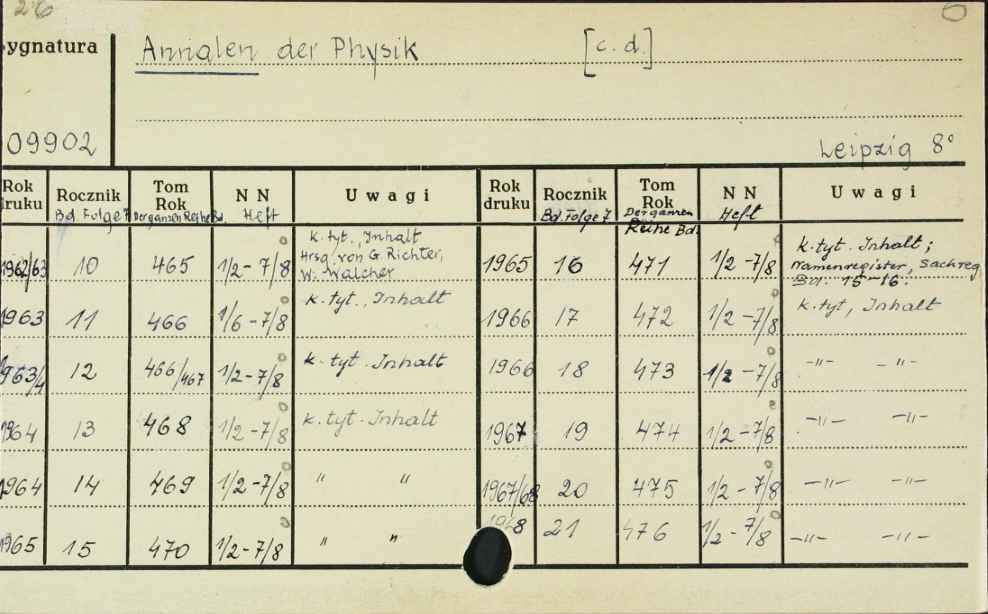 26
Sygnatura
Annalen der Physik [c. d.]
09902
Leipzig 8°
Rok druku Rocznik Bd. Folge 7 Tom Rok Der ganzen Reihe Bd. N N Heft Uwagi Rok druku Rocznik Bd. Folge 7 Tom Rok Der ganzen Reihe Bd. N N Heft Uwagi
1962/63 10 465 1/2-7/8 k. tyt., Inhalt Hrsg. von G. Richter, W. Walcher 1965 16 471 1/2-7/8 k. tyt. Inhalt; Namenregister, Sachreg Bd. 15-16.
1963 11 466 1/6-7/8 k. tyt., Inhalt 1966 17 472 1/2-7/8 k. tyt, Inhalt
1963/4 12 466/467 1/2-7/8 k. tyt. Inhalt 1966 18 473 1/2-7/8 -"- -"-
1964 13 468 1/2-7/8 k. tyt. Inhalt 1967 19 474 1/2-7/8 -"- -"-
1964 14 469 1/2-7/8 " " 1967/68 20 475 1/2-7/8 -"- -"-
1965 15 470 1/2-7/8 " " 1968 21 476 1/2-7/8 -"- -"-